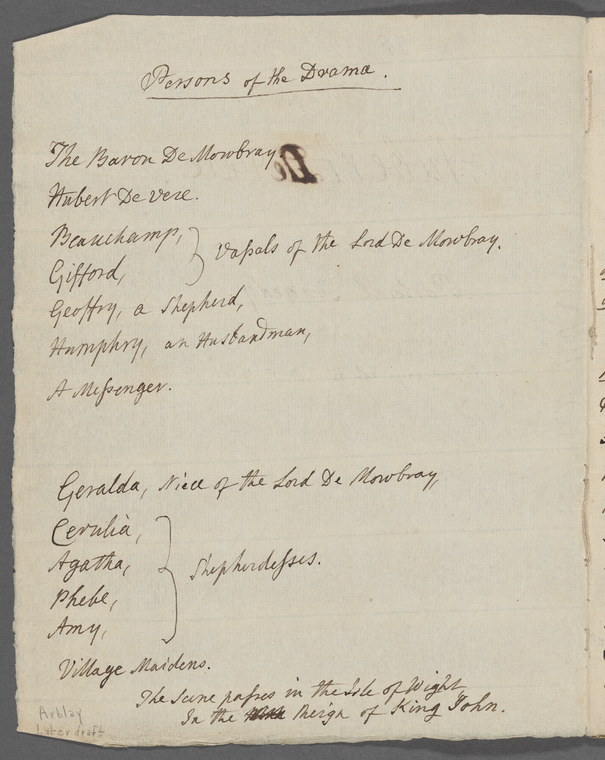 Persons of the Drama.
The Baron De Mowbray
Hubert De Vere.
Beauchamp,
Gifford,
Vaſsals of the Lord De Mowbray.
Geoffry, a Shepherd,
Humphry, an Husbandman,
A Meſsenger.
Geralda, Niece of the Lord De Mowbray,
Cerulia,
Agatha,
Phebe,
Amy,
Shepherdeſses.
Village Maidens.
The Scene paſses in the Isle of Wight
In the Reign of King John.
Arblay
Later draft